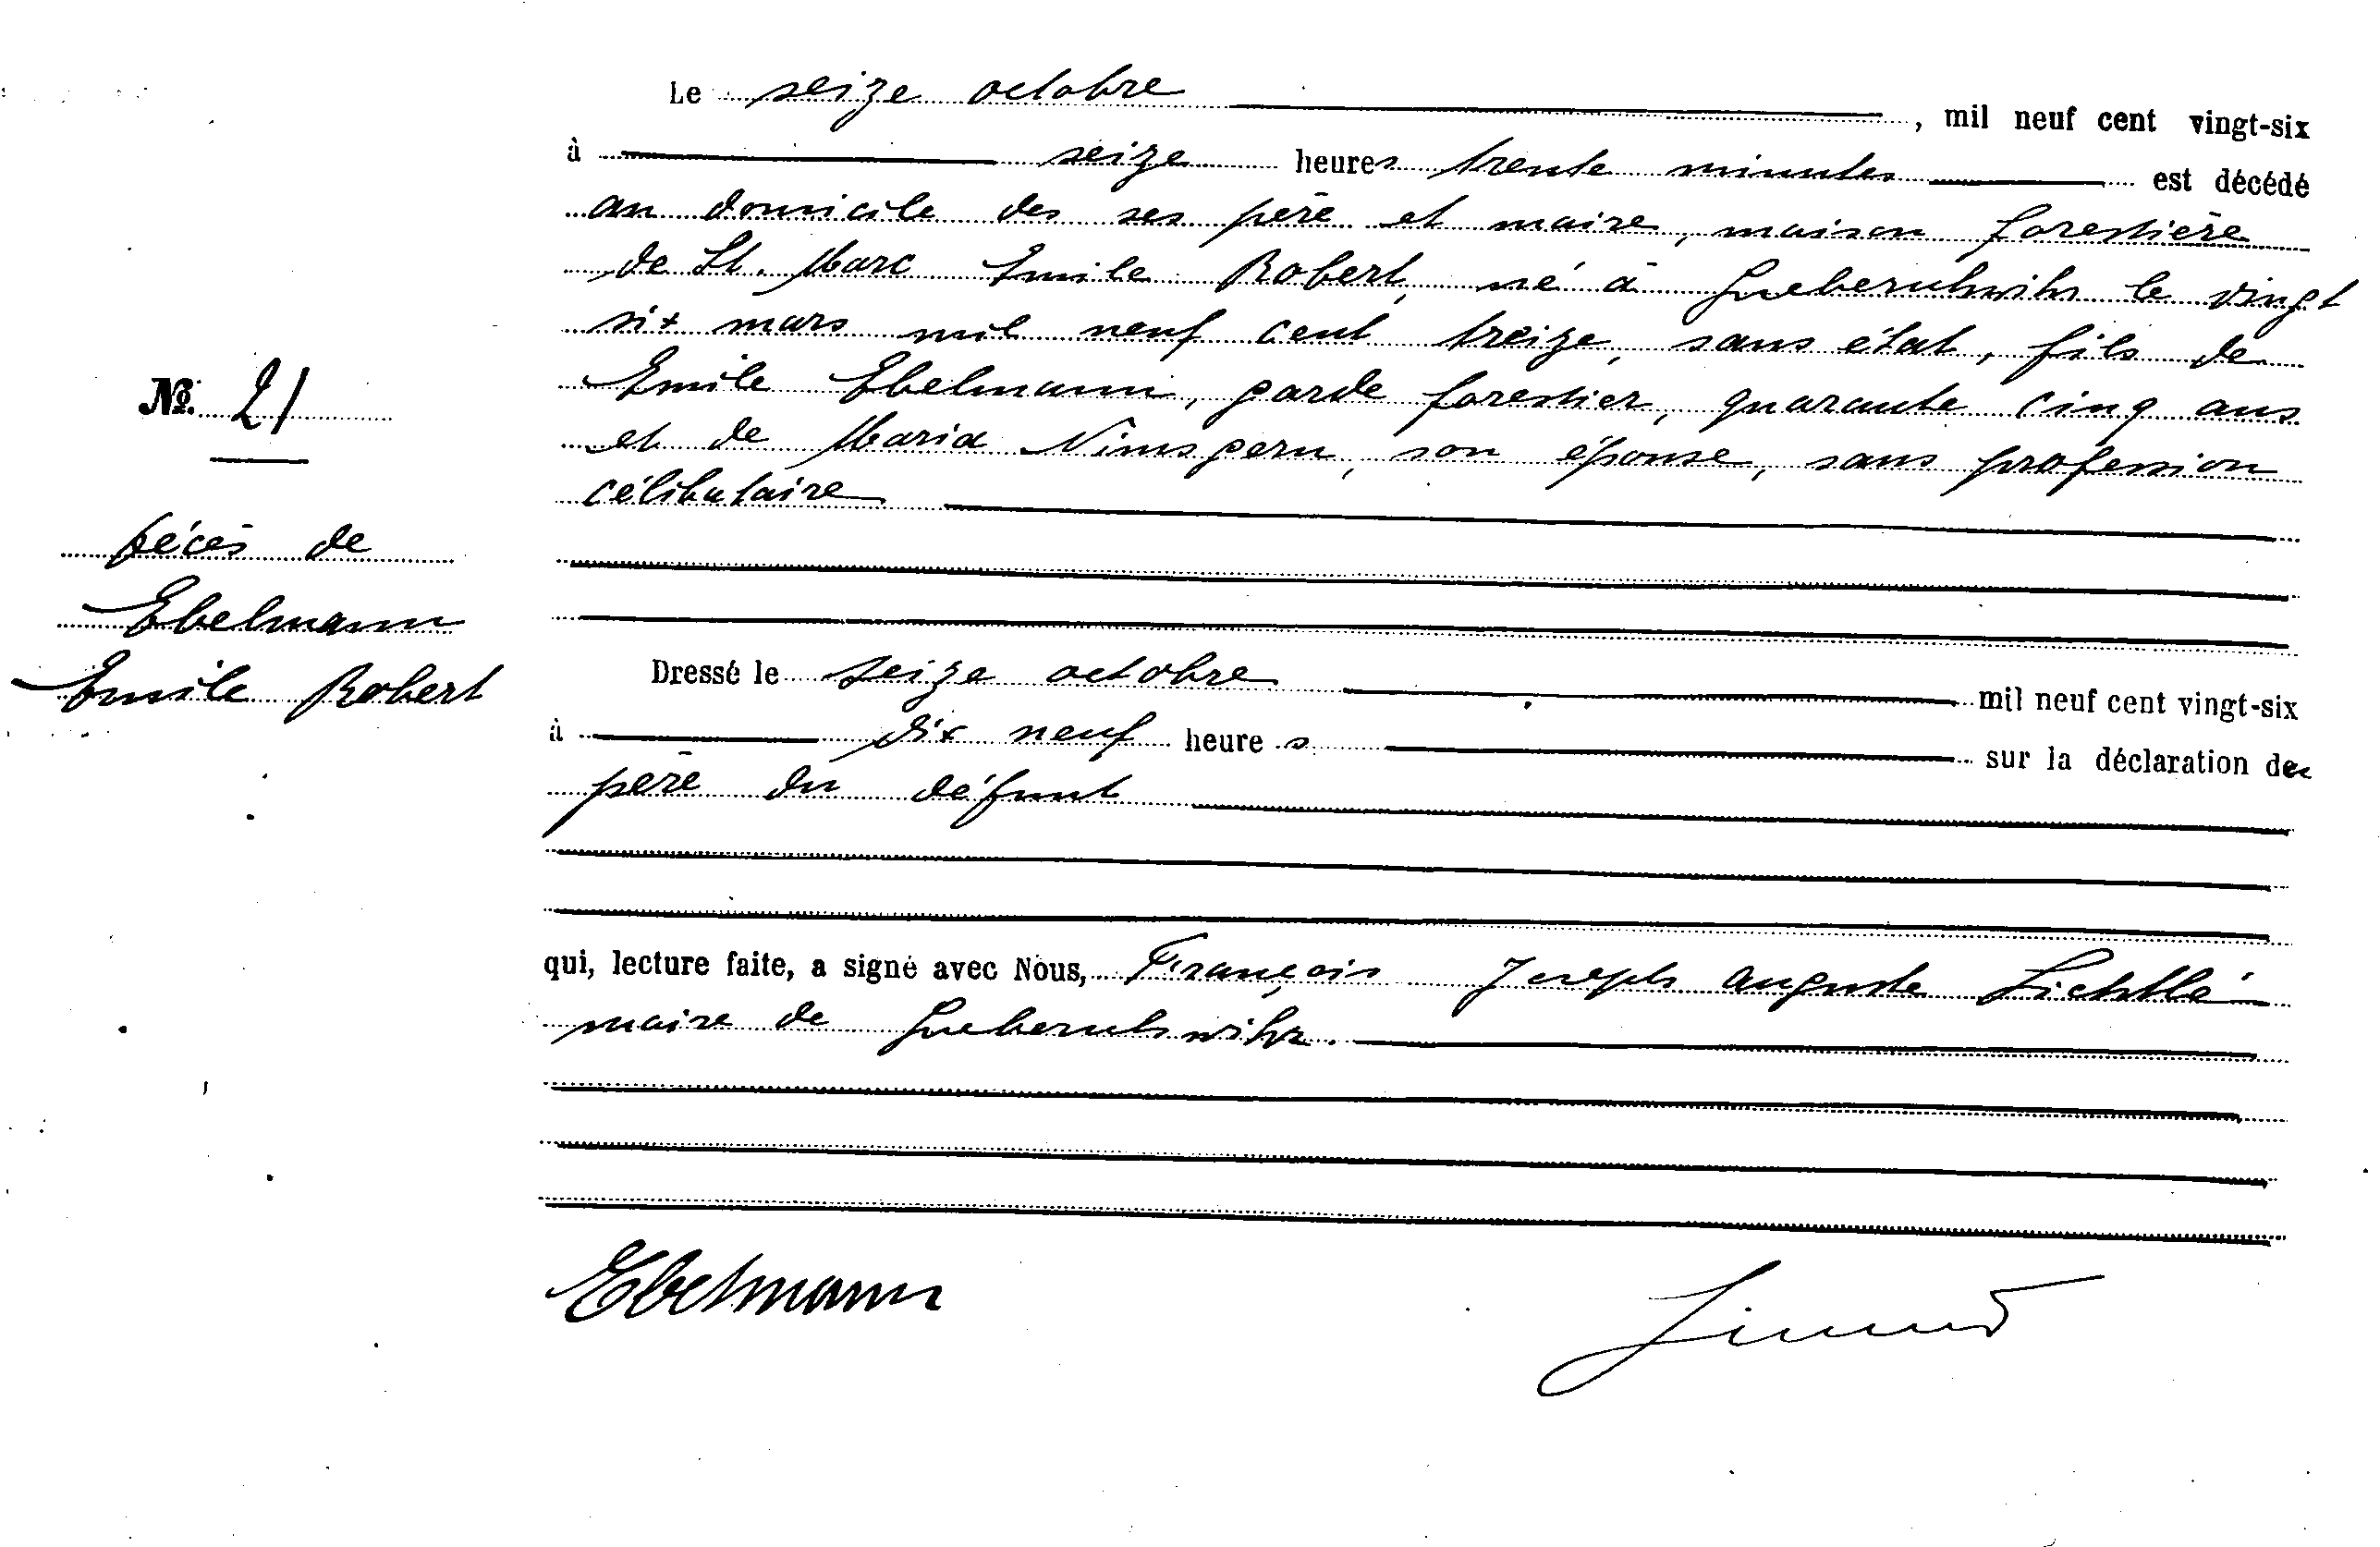 Le seize octobre, mil neuf cent vingt-six
à seize heures trente minutes est décédé
au domicile des ses père et maire, maison forestière
de St. Marc Emile Robert, né à Gueberschwihr le vingt
six mars mil neuf cent treize, sans état, fils de
Emile Ebelmann, garde forestier, quarante cinq ans
et de Maria Nimsgern, son épouse, sans profession
célibataire
No. 21
Décès de
Ebelmann
Emile Robert
Dressé le seize octobre mil neuf cent vingt-six
à dix neuf heures sur la déclaration de
père du défunt
qui, lecture faite, a signé avec Nous, François Joseph Auguste Lichtlé
maire de Gueberschwihr.
Ebelmann